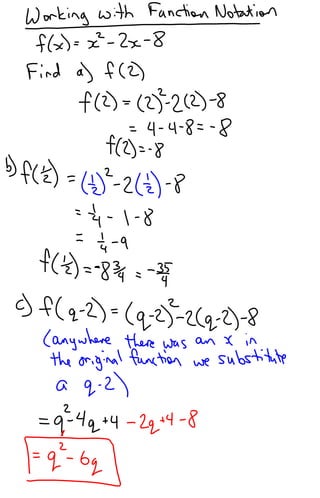 Working with Function Notation
f(x) = x² - 2x - 8
Find a) f(2)
f(2) = (2)² - 2(2) - 8
= 4 - 4 - 8 = -8
f(2) = -8
b) f(½) = (½)² - 2(½) - 8
= ¼ - 1 - 8
= ¼ - 9
f(½) = -8¾ = -35/4
c) f(q-2) = (q-2)² - 2(q-2) - 8
(anywhere there was an x in
the original function we substitute
a q-2)
= q² - 4q + 4 - 2q + 4 - 8
= q² - 6q